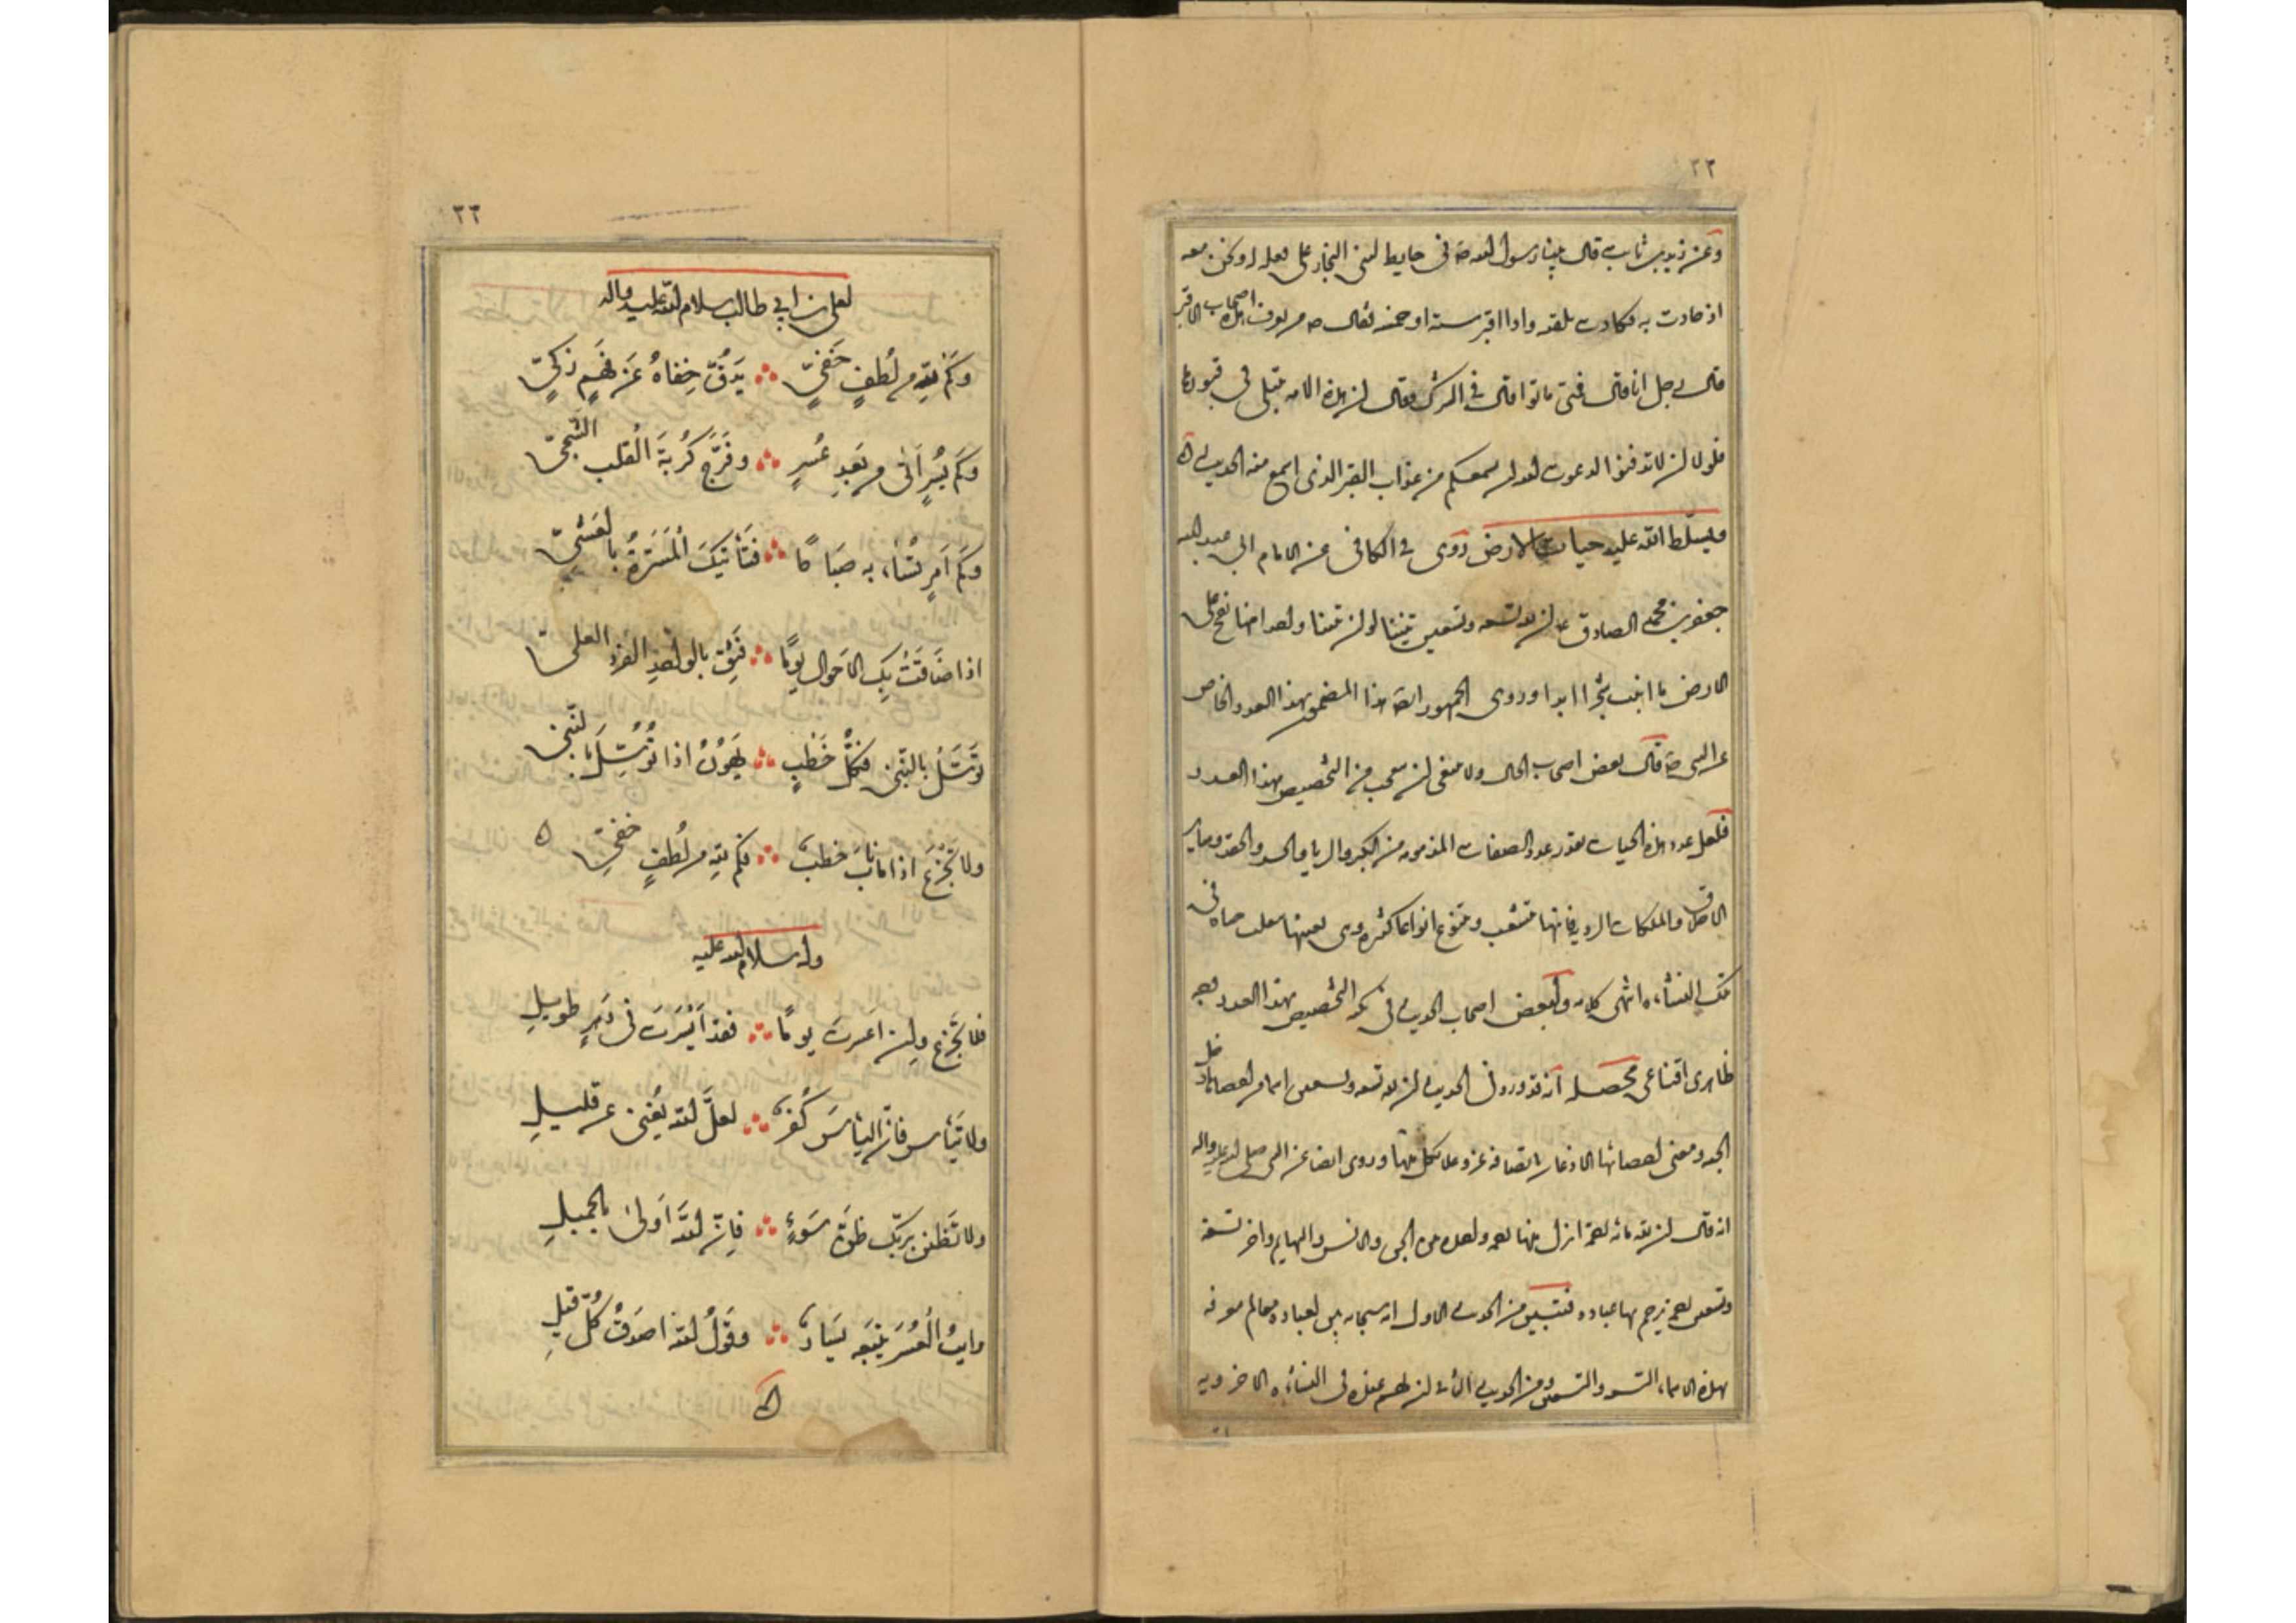 ٢٢
وعن زيد بن ثابت قال بينا رسول الله ص فى حايط لبنى النجار على بغلة له ونحن معه
اذ حادت به فكادت تلقيه واذا اقبر ستة او خمسة فقال ص من يعرف اصحاب هذه الاقبر
قال رجل انا قال فمتى ماتوا قال فى الشرك فقال ان هذه الامه تبتلى فى قبورها
فلولا ان لا تدافنوا لدعوت الله ان يسمعكم من عذاب القبر الذى اسمع منه الحديث
ويسلط الله عليه حيات الارض روى فى الكافى عن الامام ابى عبد الله
جعفر بن محمد الصادق ع ان لله تسعه وتسعين تنينا لو ان تنينا واحدا منها نفخ على
الارض ما انبتت شجرا ابدا وروى الجمهور ايضا هذا المضمون بهذا العدد الخاص
عن النبى ص قال بعض اصحاب الحال ولا ينبغى ان يتعجب من التخصيص بهذا العدد
فلعل عدد هذه الحيات بقدر عدد الصفات المذمومه من الكبر والريا والحسد والحقد وساير
الاخلاق والملكات الرديه فانها تتشعب وتتنوع انواعا كثيره وهى بعينها تنقلب حيات فى
تلك النشأة انتهى كلامه ولبعض اصحاب الحديث فى نكتة التخصيص بهذا العدد وجه
ظاهرى اقناعى محصله انه قد ورد فى الحديث ان لله تسعه وتسعين اسما من احصاها دخل
الجنه ومعنى احصائها الاذعان باتصافه عز وعلا بكل منها وروى ايضا عن النبى صلى الله عليه واله
انه قال ان لله مائة رحمة انزل منها رحمه واحده بين الجن والانس والبهايم واخر تسعه
وتسعين رحمه يرحم بها عباده فتبين من الحديث الاول انه سبحانه بين لعباده معالم معرفته
بهذه الاسماء التسعه والتسعين ومن الحديث الثانى ان لهم عنده فى النشأة الاخرويه
٢٣
لعلى بن ابي طالب سلام الله عليه واله
وكم لله من لطف خفي يدق خفاه عن فهم زكي
وكم يسر اتى من بعد عسر وفرج كربة القلب الشجي
وكم امر تساء به صباحا فتأتيك المسرة بالعشي
اذا ضاقت بك الاحوال يوما فثق بالواحد الفرد العلي
توسل بالنبي فكل خطب يهون اذا توسل بالنبي
ولا تجزع اذا ما ناب خطب فكم لله من لطف خفي
وله سلام الله عليه
فلا تجزع وان اعسرت يوما فقد ايسرت فى دهر طويل
ولا تيأس فان اليأس كفر لعل الله يغنى عن قليل
ولا تظنن بربك ظن سوء فان الله اولى بالجميل
رايت العسر يتبعه يسار وقول الله اصدق كل قيل